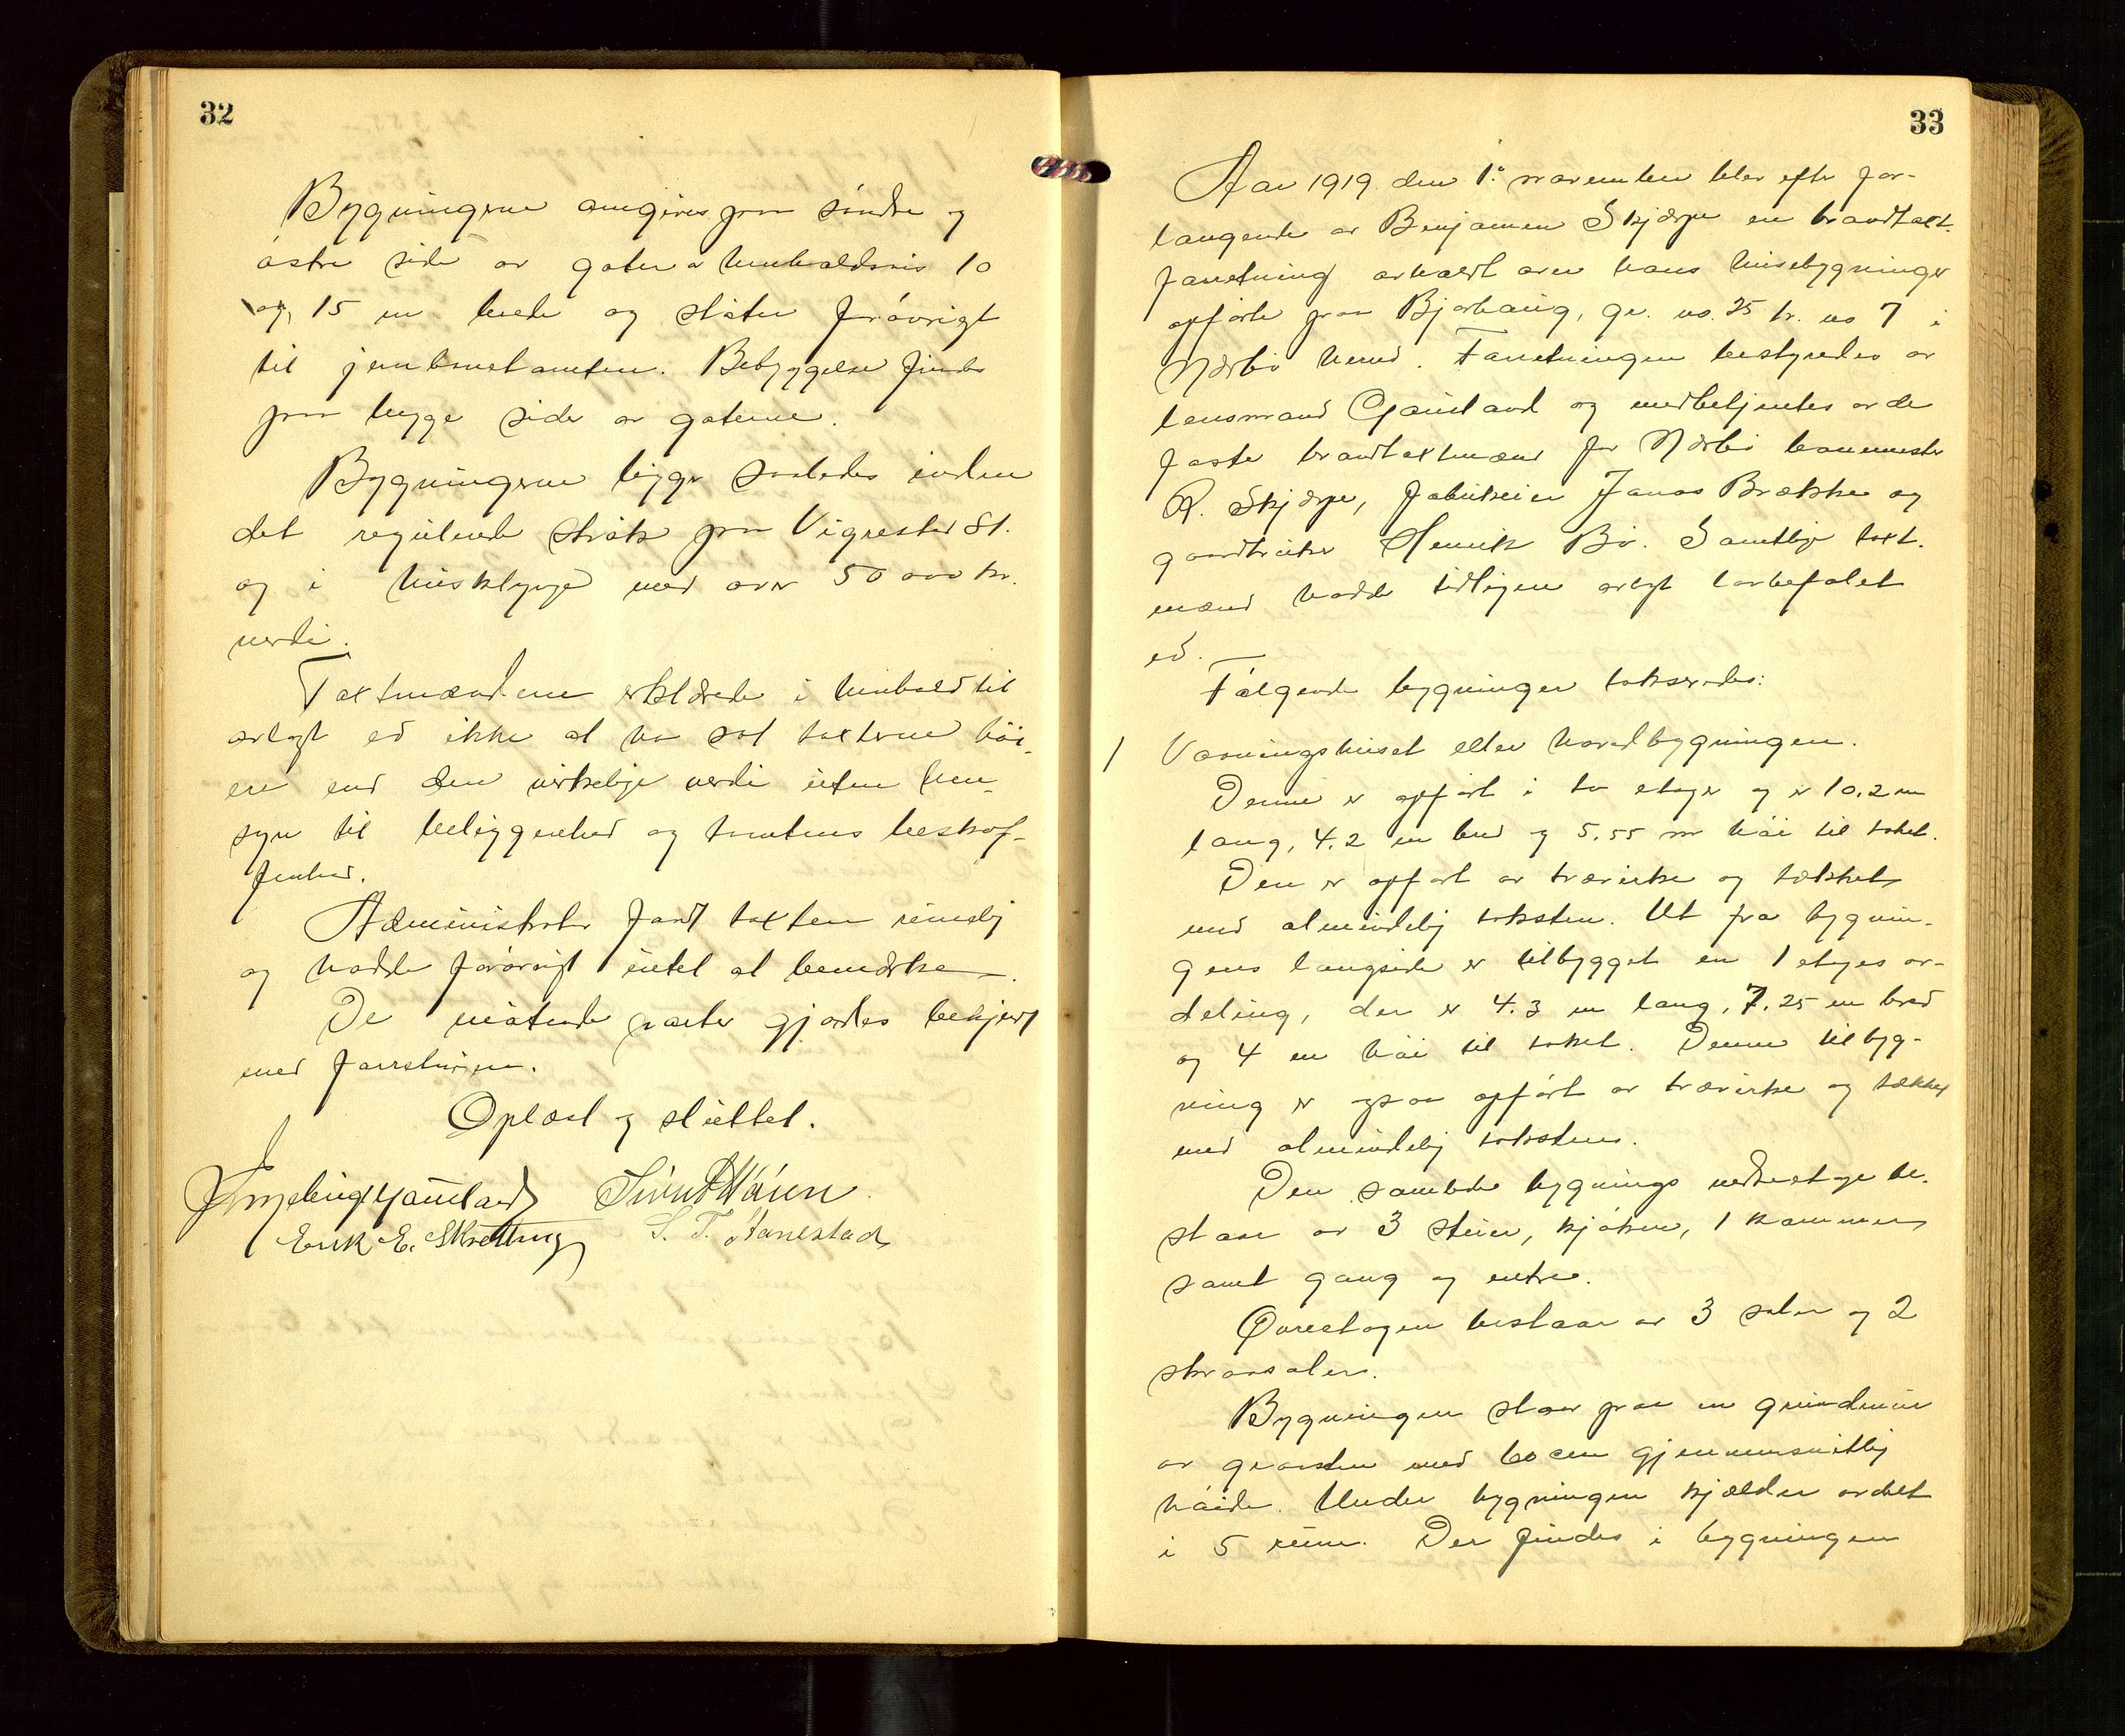 32
Bygningerne omgives paa søndre og
østre side av gater av henholdsvis 10
og 15 m brede og støter forøvrigt
til jernbanetomten. Bebyggelse findes
paa begge sider av gaterne.
Bygningerne ligger saaledes inden
det regulerede strøk paa Vigrestad St.
og i husklynge med over 50 000 kr.
verdi.
Taxtmændene erklærede i henhold til
avlagt ed ikke at ha sat taxterne høi-
ere end den virkelige verdi uten hen-
syn til beliggenhed og tomtens beskaf-
fenhed.
Administrator fandt taxten rimelig
og hadde forøvrigt intet at bemærke.
De møtende parter gjordes bekjendt
med forretningen.
Oplæst og sluttet.
Gausland
Erik E. Skretting S. T. Aanestad
33
Aar 1919 den 1ste november blev efter for-
langende av Benjamin Skjærpe en brandtaxt-
forretning avholdt over hans husebygninger
opførte paa Bjorhaug, gr. no. 25 br. no 7 i
Nærbø herred. Forretningen bestyredes av
lensmand Gausland og medbetjentes av de
faste brandtaxtmænd for Nærbø banemester
R. Skjærpe, fabrikeier Jonas Brække og
gaardbruker Henrik Bø. Samtlige taxt-
mænd hadde tidligere avlagt lovbefalet
ed.
Følgende bygninger takseredes:
1 Vaaningshuset eller hovedbygningen.
Denne er opført i to etager og er 10.2 m
lang, 4.2 m bred og 5.55 m høi til taket.
Den er opført av trævirke og tækket
med almindelig taksten. Ut fra bygnin-
gens langside er tilbygget en 1 etages av-
deling, der er 4.3 m lang, 7.25 m bred
og 4 m høi til taket. Denne tilbyg-
ning er ogsaa opført av trævirke og tækket
med almindelig taksten.
Den samlede bygnings nedreetage be-
staar av 3 stuer, kjøken, 1 kammer
samt gang og entre.
Øvreetagen bestaar av 3 saler og 2
skraasaler.
Bygningen staar paa en grundmur
av graasten med 60 cm gjennemsnitlig
høide. Under bygningen kjælder avdelt
i 5 rum. Der findes i bygningen